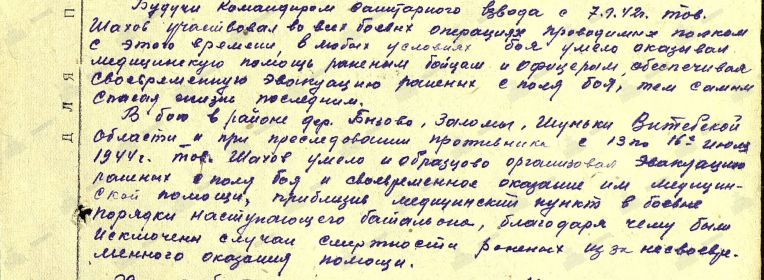 Будучи командиром санитарного взвода с 7.9.42г. тов.
Шахов участвовал во всех боевых операциях проводимых полком
с этого времени, в любых условиях боя умело оказывал
медицинскую помощь раненым бойцам и офицерам, обеспечивая
своевременную эвакуацию раненых с поля боя, тем самым
спасая жизнь последним.
В бою в районе дер. Заломы, Шуньки Витебской
области и при преследовании противника с 13 по 16 июля
1944г. тов. Шахов умело и образцово организовал эвакуацию
раненых с поля боя и своевременное оказание им медицин-
ской помощи, приблизив медицинский пункт в боевые
порядки наступающего батальона, благодаря чему были
исключены случаи смертности раненых из за несвоевре-
менного оказания помощи.
Д Л Я П